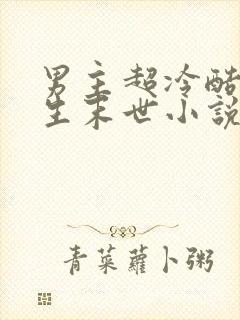 男主超冷酷
生末世小説
青菜蘿卜粥